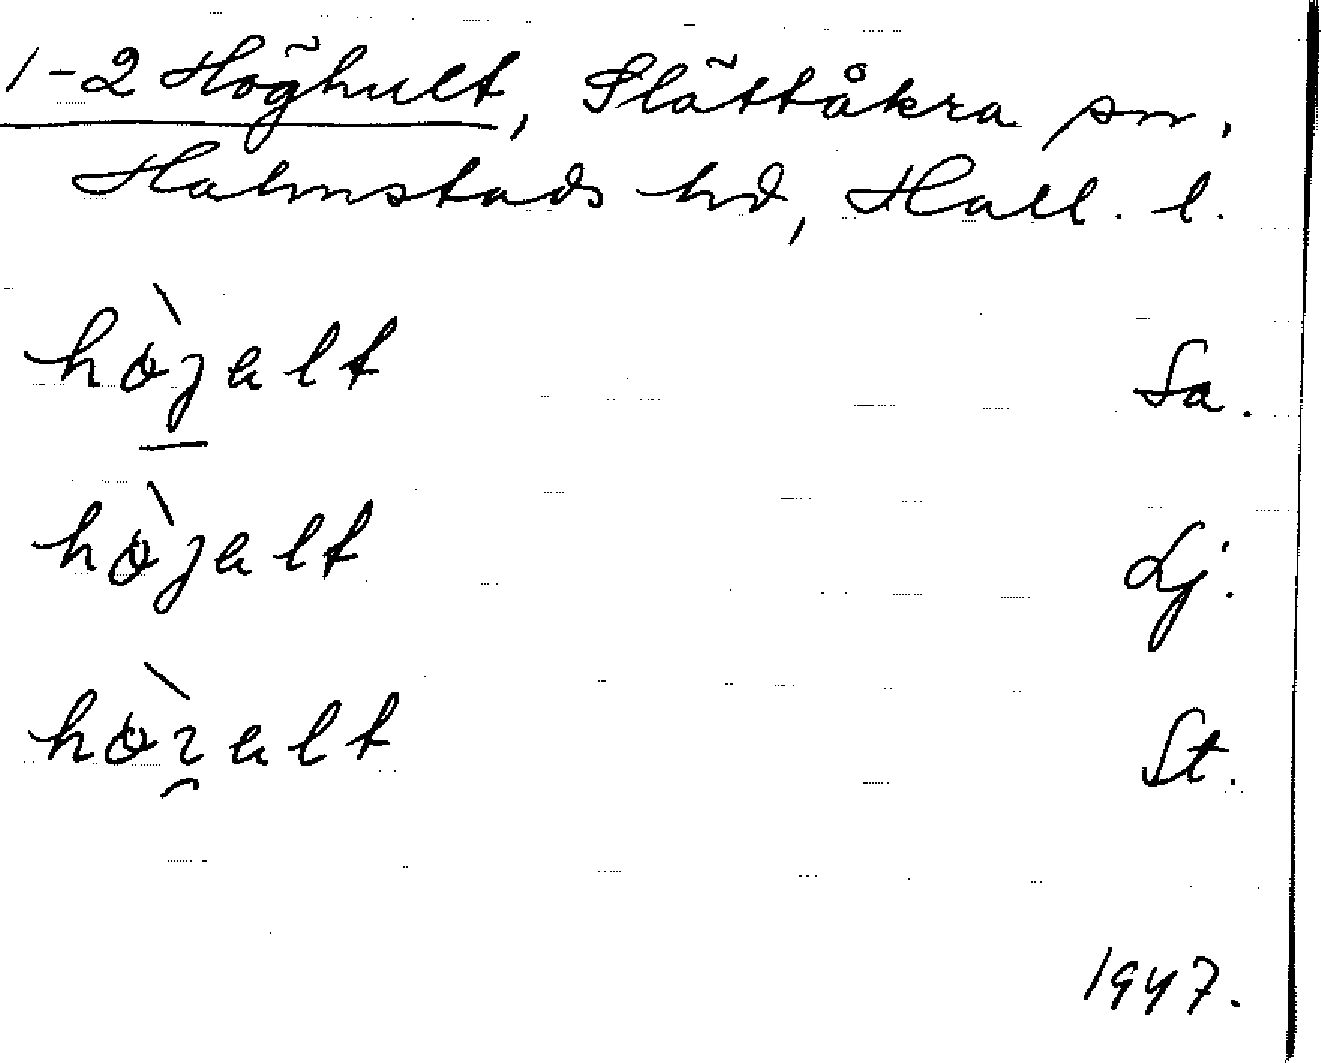 1-2 Höghult, Slättåkra sn.
Halmstads hd, Hall. l.
hö̀jalt Sa.
hö̀jalt Lj.
hö̀ɿalt St.
1947.